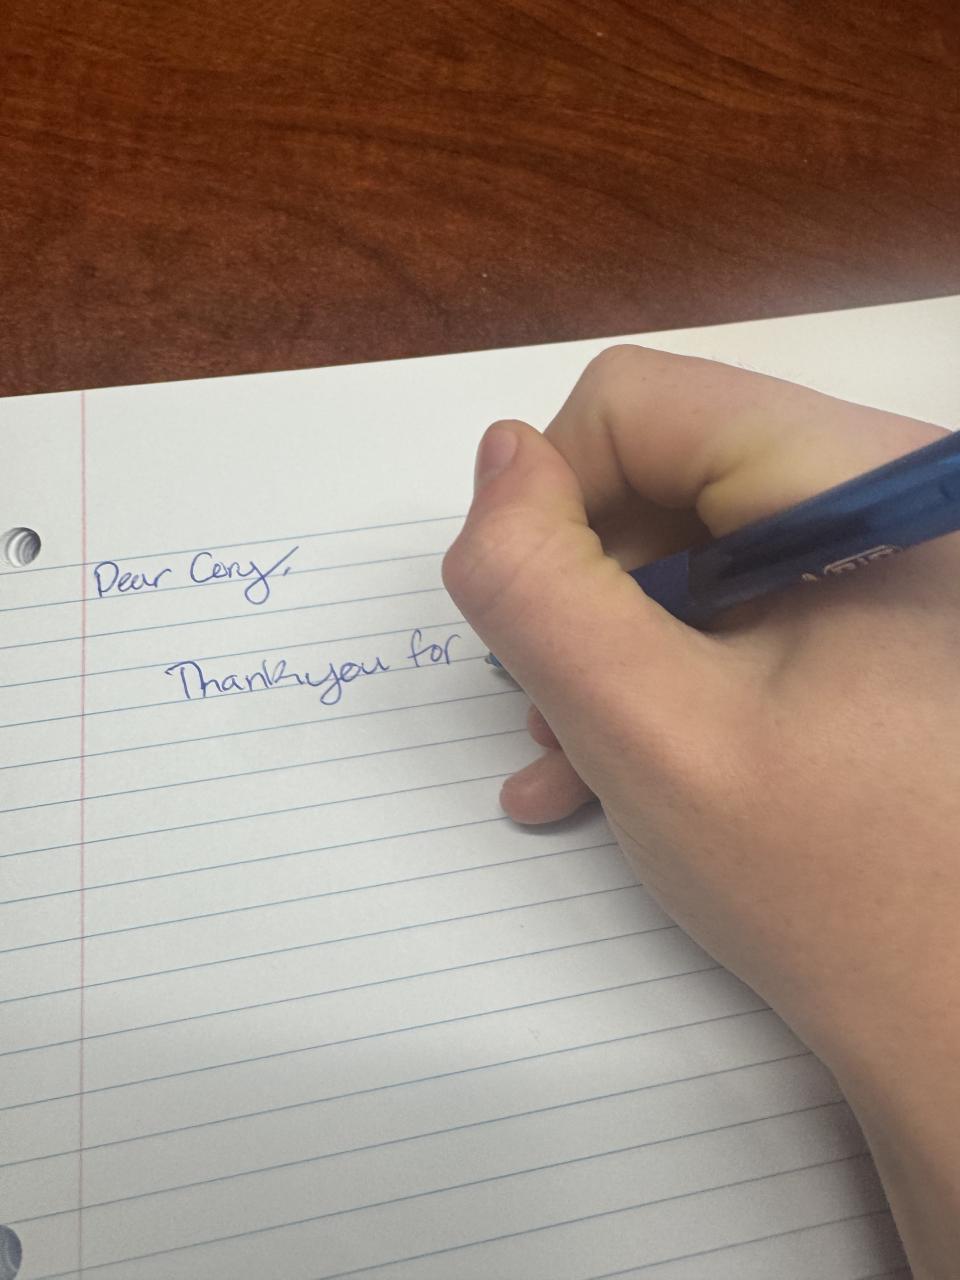 Dear Cory,
Thank you for